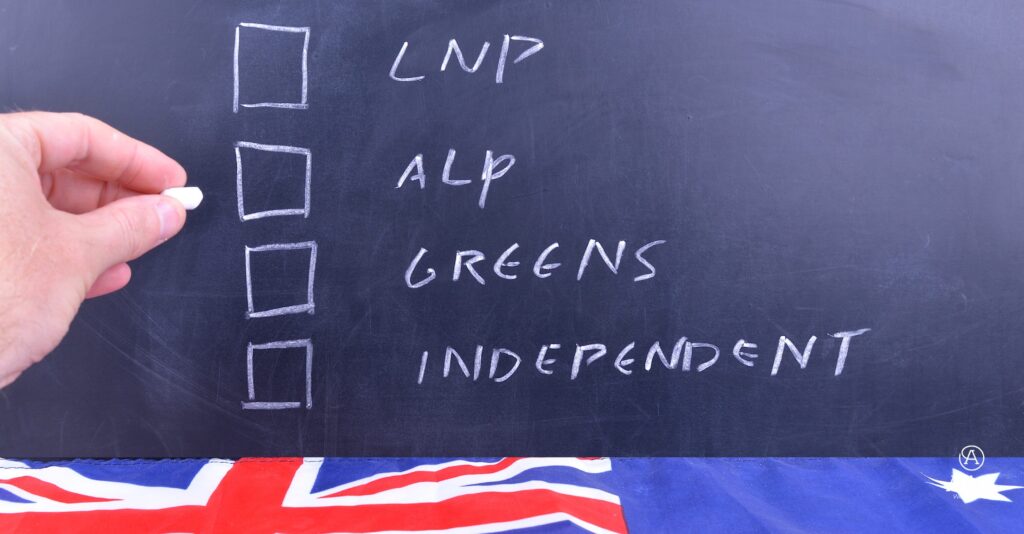 LNP
ALP
GREENS
INDEPENDENT
A